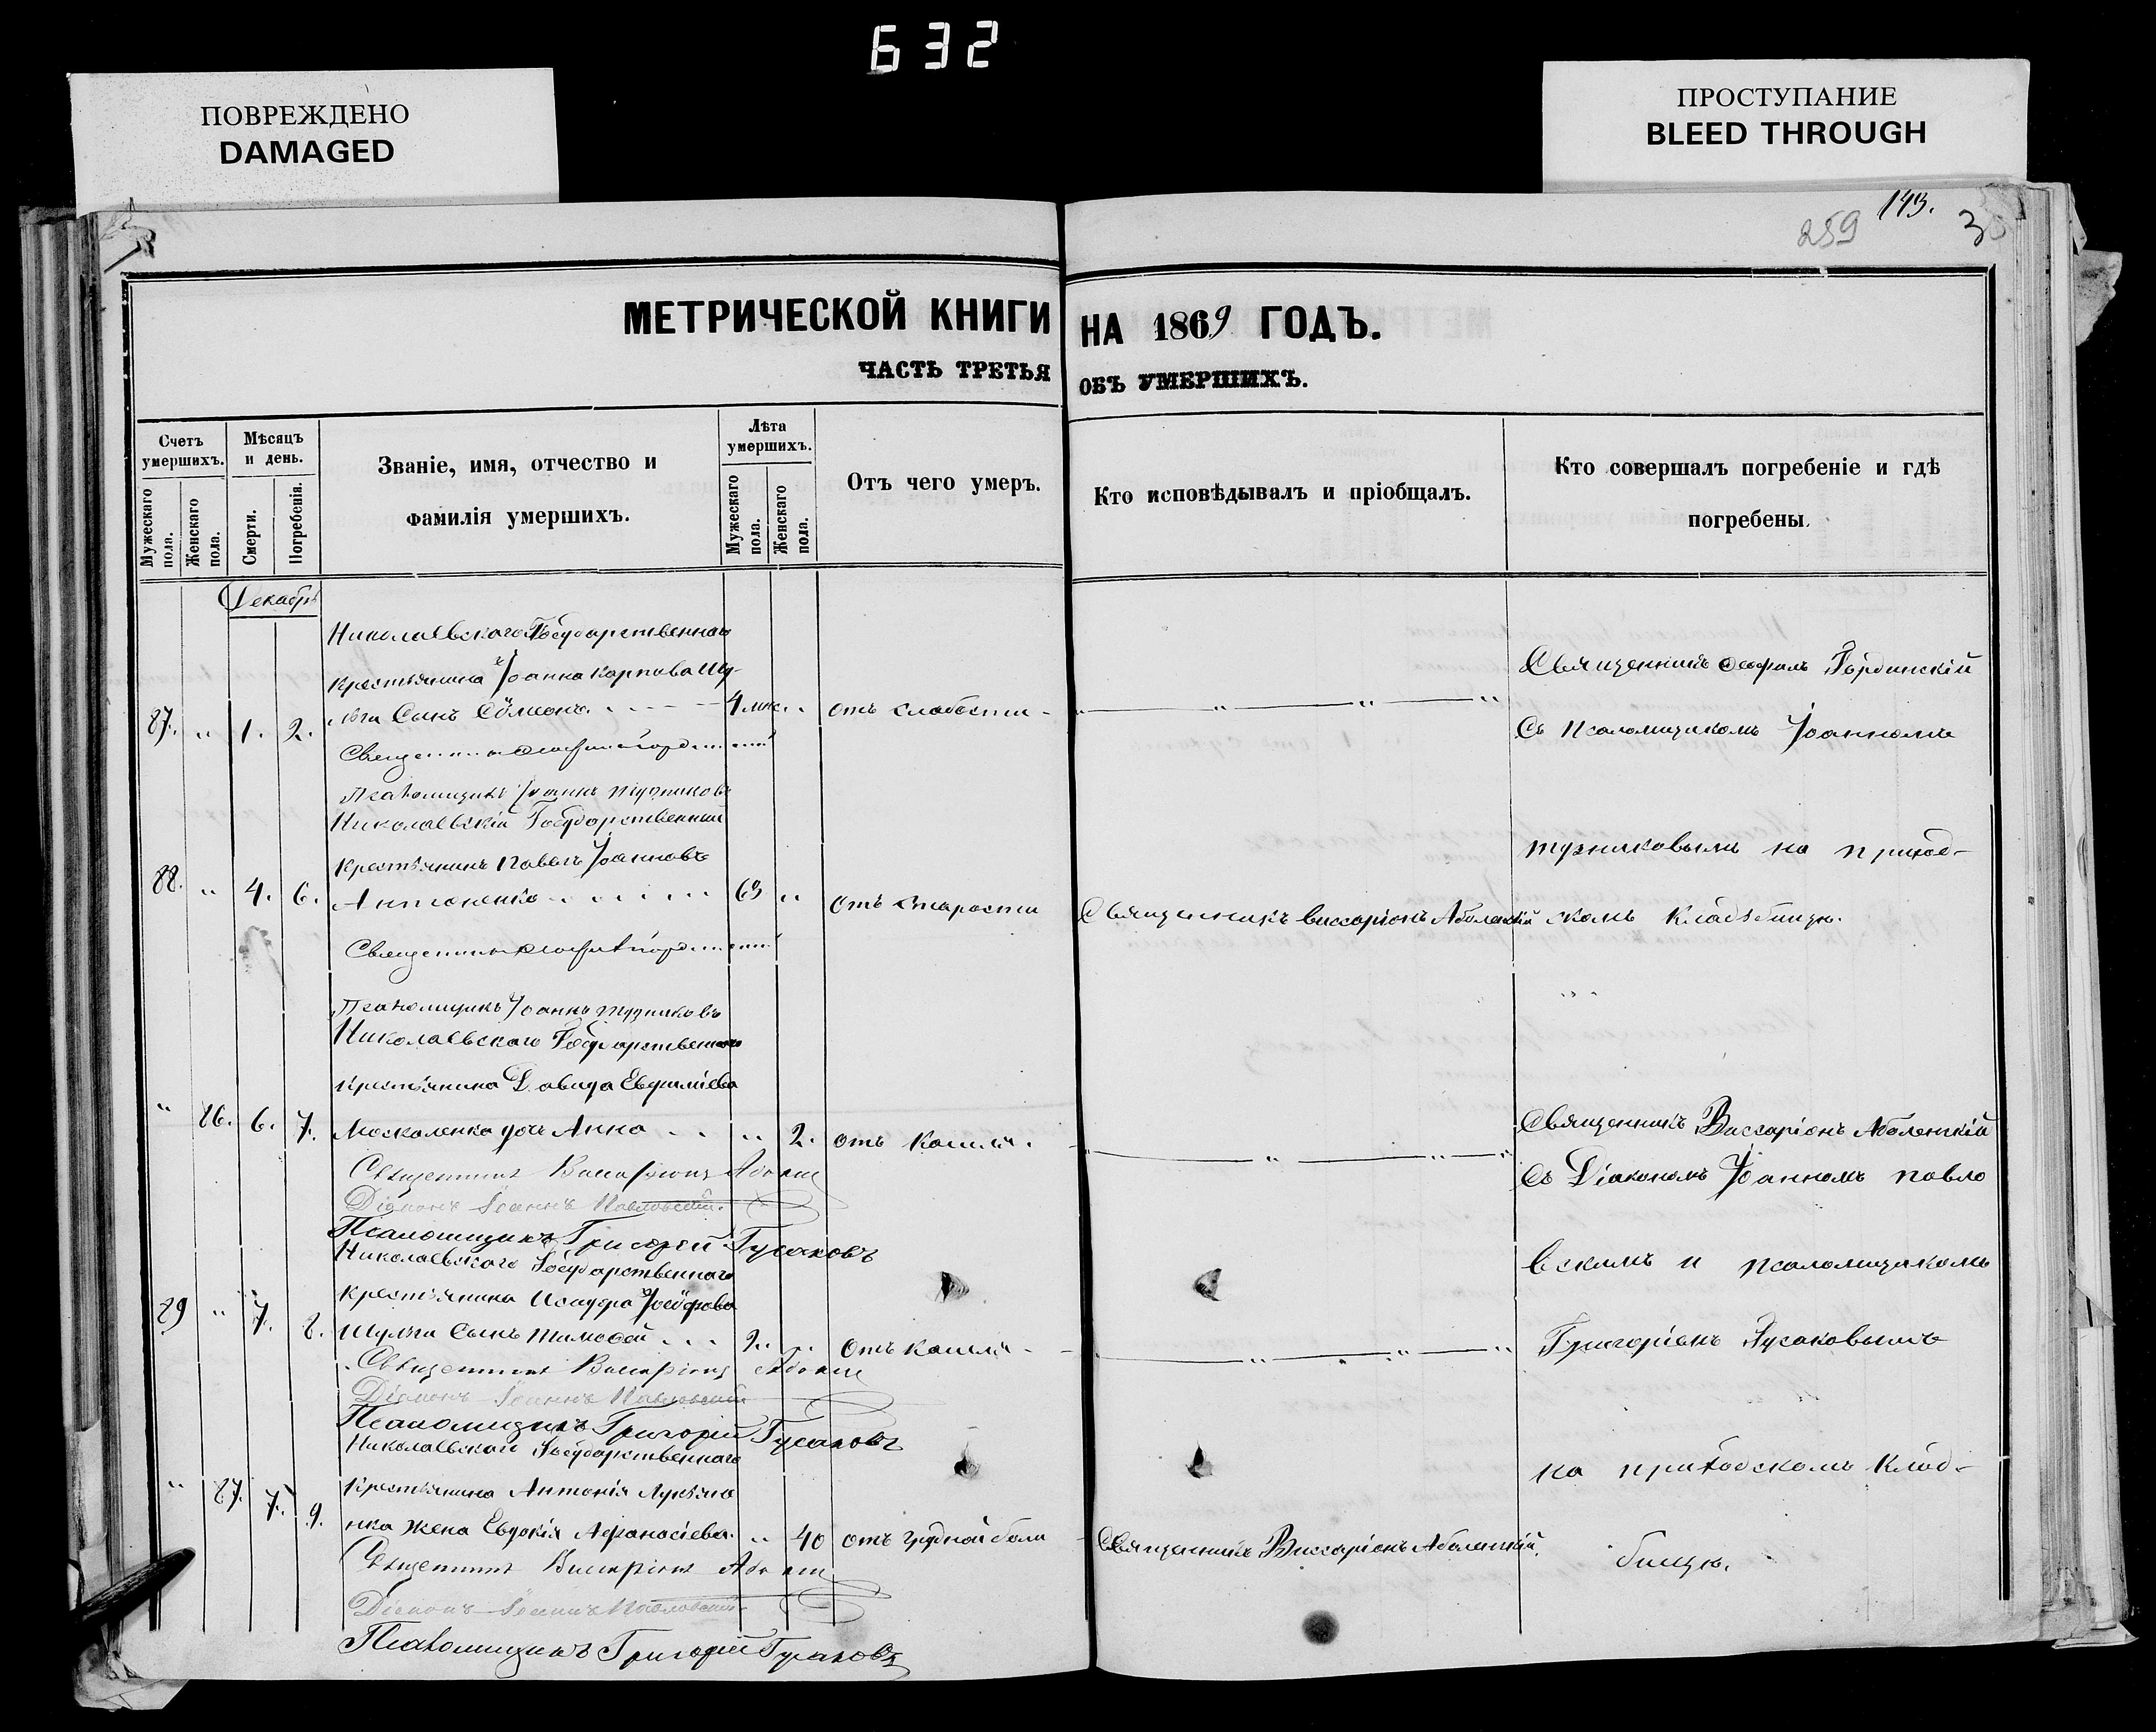 632
ПОВРЕЖДЕНО
DAMAGED
ПРОСТУПАНИЕ
BLEED THROUGH
143.
259
3
МЕТРИЧЕСКОЙ КНИГИ НА 1869 ГОДЪ.
ЧАСТЬ ТРЕТЬЯ ОБЪ УМЕРШИХЪ.
Счетъ умершихъ.
Мужескаго пола.
Женскаго пола.
Мѣсяцъ и день.
Смерти.
Погребенія.
Званіе, имя, отчество и
фамилія умершихъ.
Лѣта умершихъ.
Мужескаго пола.
Женскаго пола.
Отъ чего умеръ.
Кто исповѣдывалъ и пріобщалъ.
Кто совершалъ погребеніе и гдѣ
погребены.
Декабрь
Николаевскаго Государственнаго
крестьянина Іоанна Карпова Шу-
87. " 1. 2. льги Сынъ Сѵмеонъ 4 мѣс. " отъ слабости
Священникъ
Псаломщикъ Іоаннъ
Николаевскій Государственный
крестьянинъ Павелъ Іоанновъ
88. " 4. 6. Антоненко 63 " отъ старости Священникъ Виссаріонъ Аболенскій
Священникъ
Псаломщикъ Іоаннъ
Николаевскаго Государственнаго
крестьянина Давида Евфиміева
" 86. 6. 7. Москаленка дочь Анна " 2. отъ кашля.
Священникъ Виссаріонъ
Діаконъ Іоаннъ Павловскій.
Псаломщикъ Григорій Гусаковъ
Николаевскаго Государственнаго
крестьянина Исидора Іосифова
89 " 7. 8. Шульги Сынъ Тимофей 2. " отъ кашля
Священникъ Виссаріонъ
Діаконъ Іоаннъ Павловскій
Псаломщикъ Григорій Гусаковъ
Николаевскаго Государственнаго
крестьянина Антонія Лукьяне
" 87. 7. 9. нка жена Евдокія Афанасіева. " 40 отъ грудной боли Священникъ Виссаріонъ Аболенскій.
Священникъ Виссаріонъ
Діаконъ Іоаннъ Павловскій
Псаломщикъ Григорій Гусаковъ
Священникъ
Съ псаломщикомъ Іоанномъ
на приход-
скомъ кладбищѣ.
Священникъ Виссаріонъ Аболенскій
Съ Діакономъ Іоанномъ Павло
вскимъ и псаломщикомъ
Григоріемъ Гусаковымъ
на приходскомъ клад-
бищѣ.